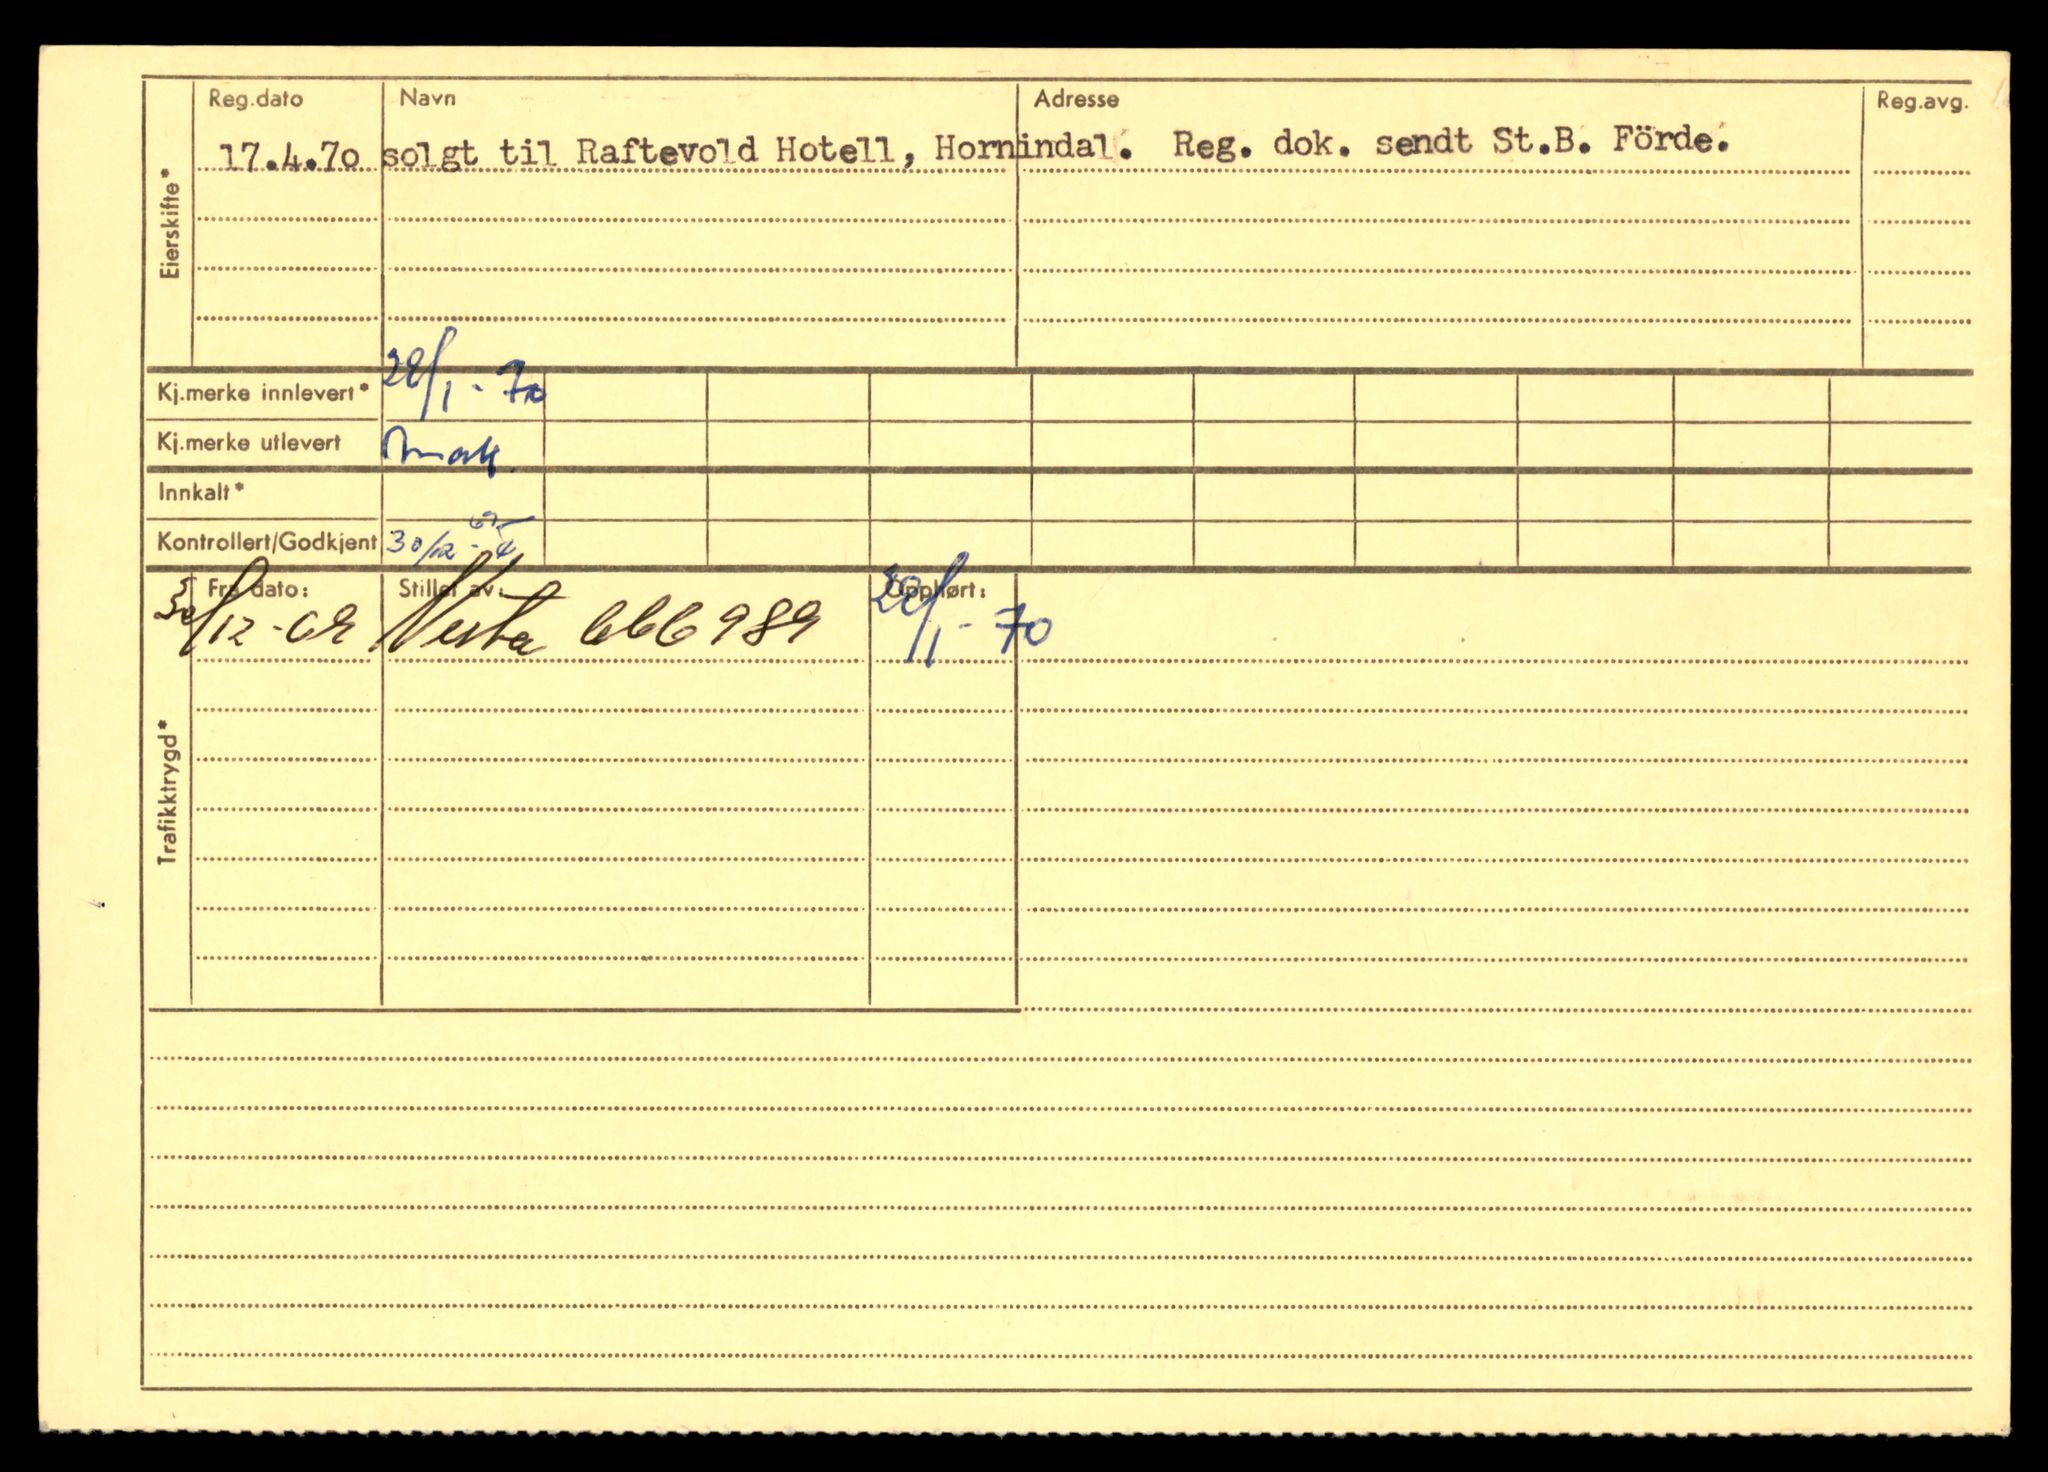 Reg.dato Navn Adresse Reg.avg.
17.4.70 solgt til Raftevold Hotell, Hornindal. Reg. dok. sendt St.B. Förde.
Eierskifte*
Kj.merke innlevert* 28/1-70
Kj.merke utlevert
Innkalt*
Kontrollert/Godkjent 30/12-69
Fra dato: Stillet av: Opphørt:
30/12-69 Vesta 666989 28/1-70
Trafikktrygd*